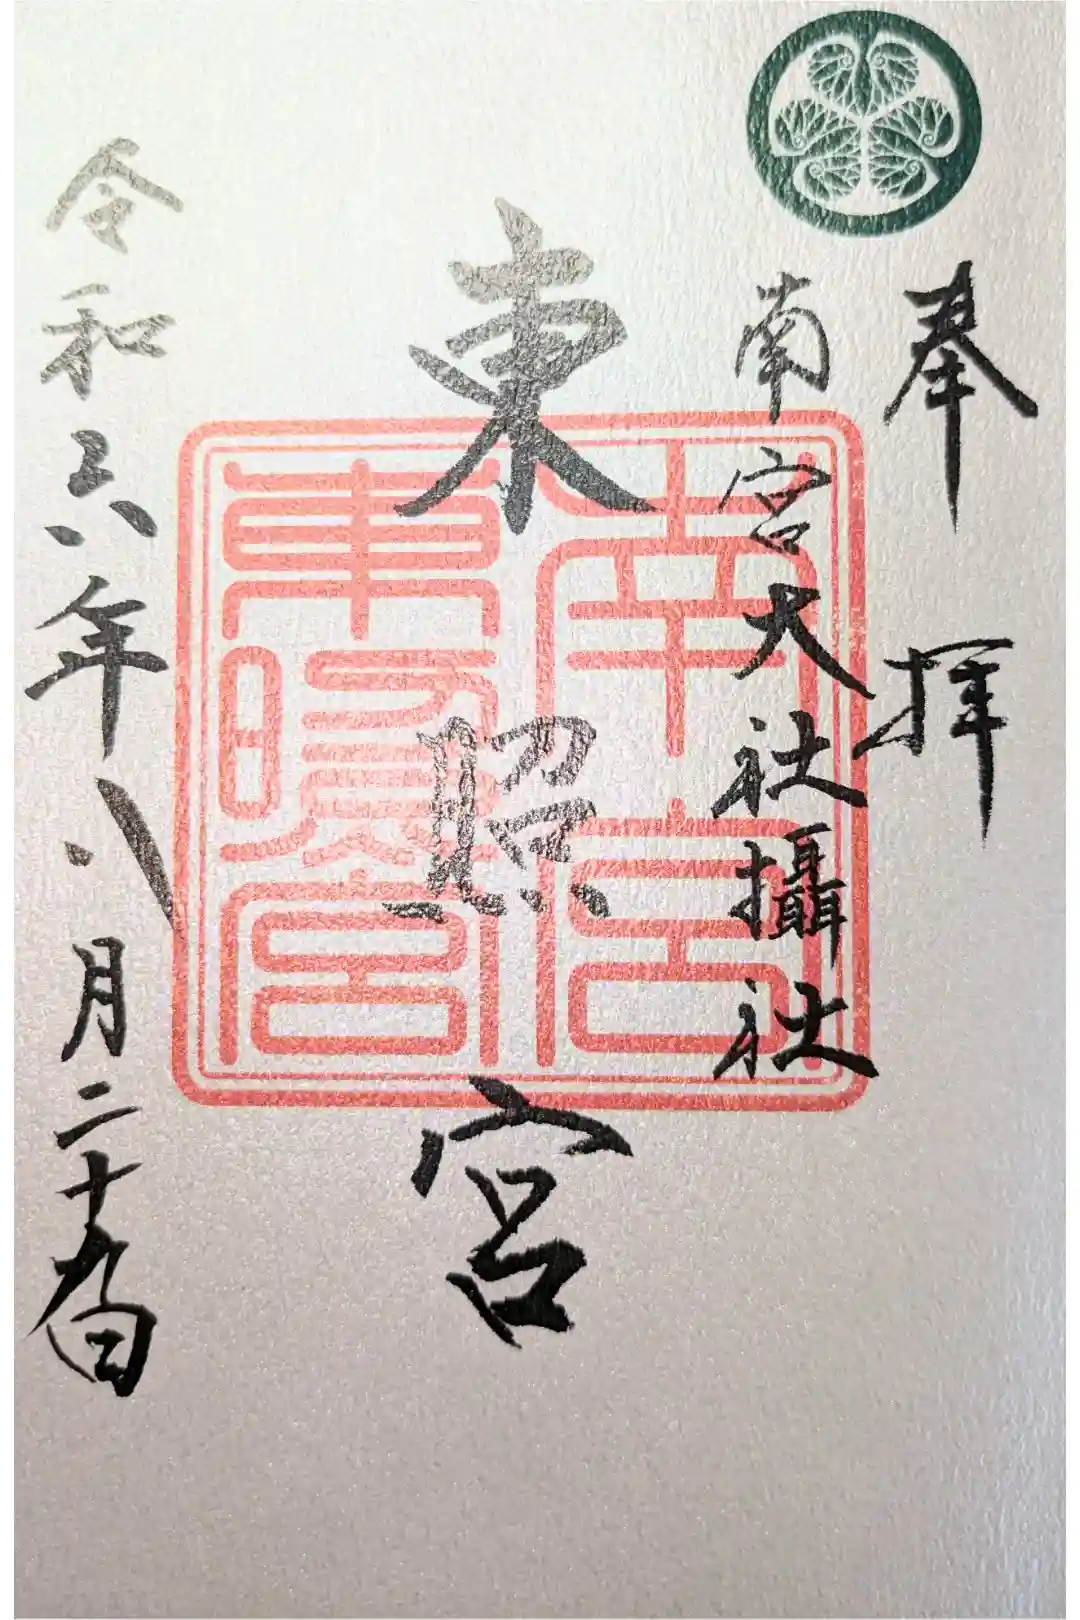 奉拝
南宮大社攝社
東照宮
南宮
東照宮
令和六年八月二十九日